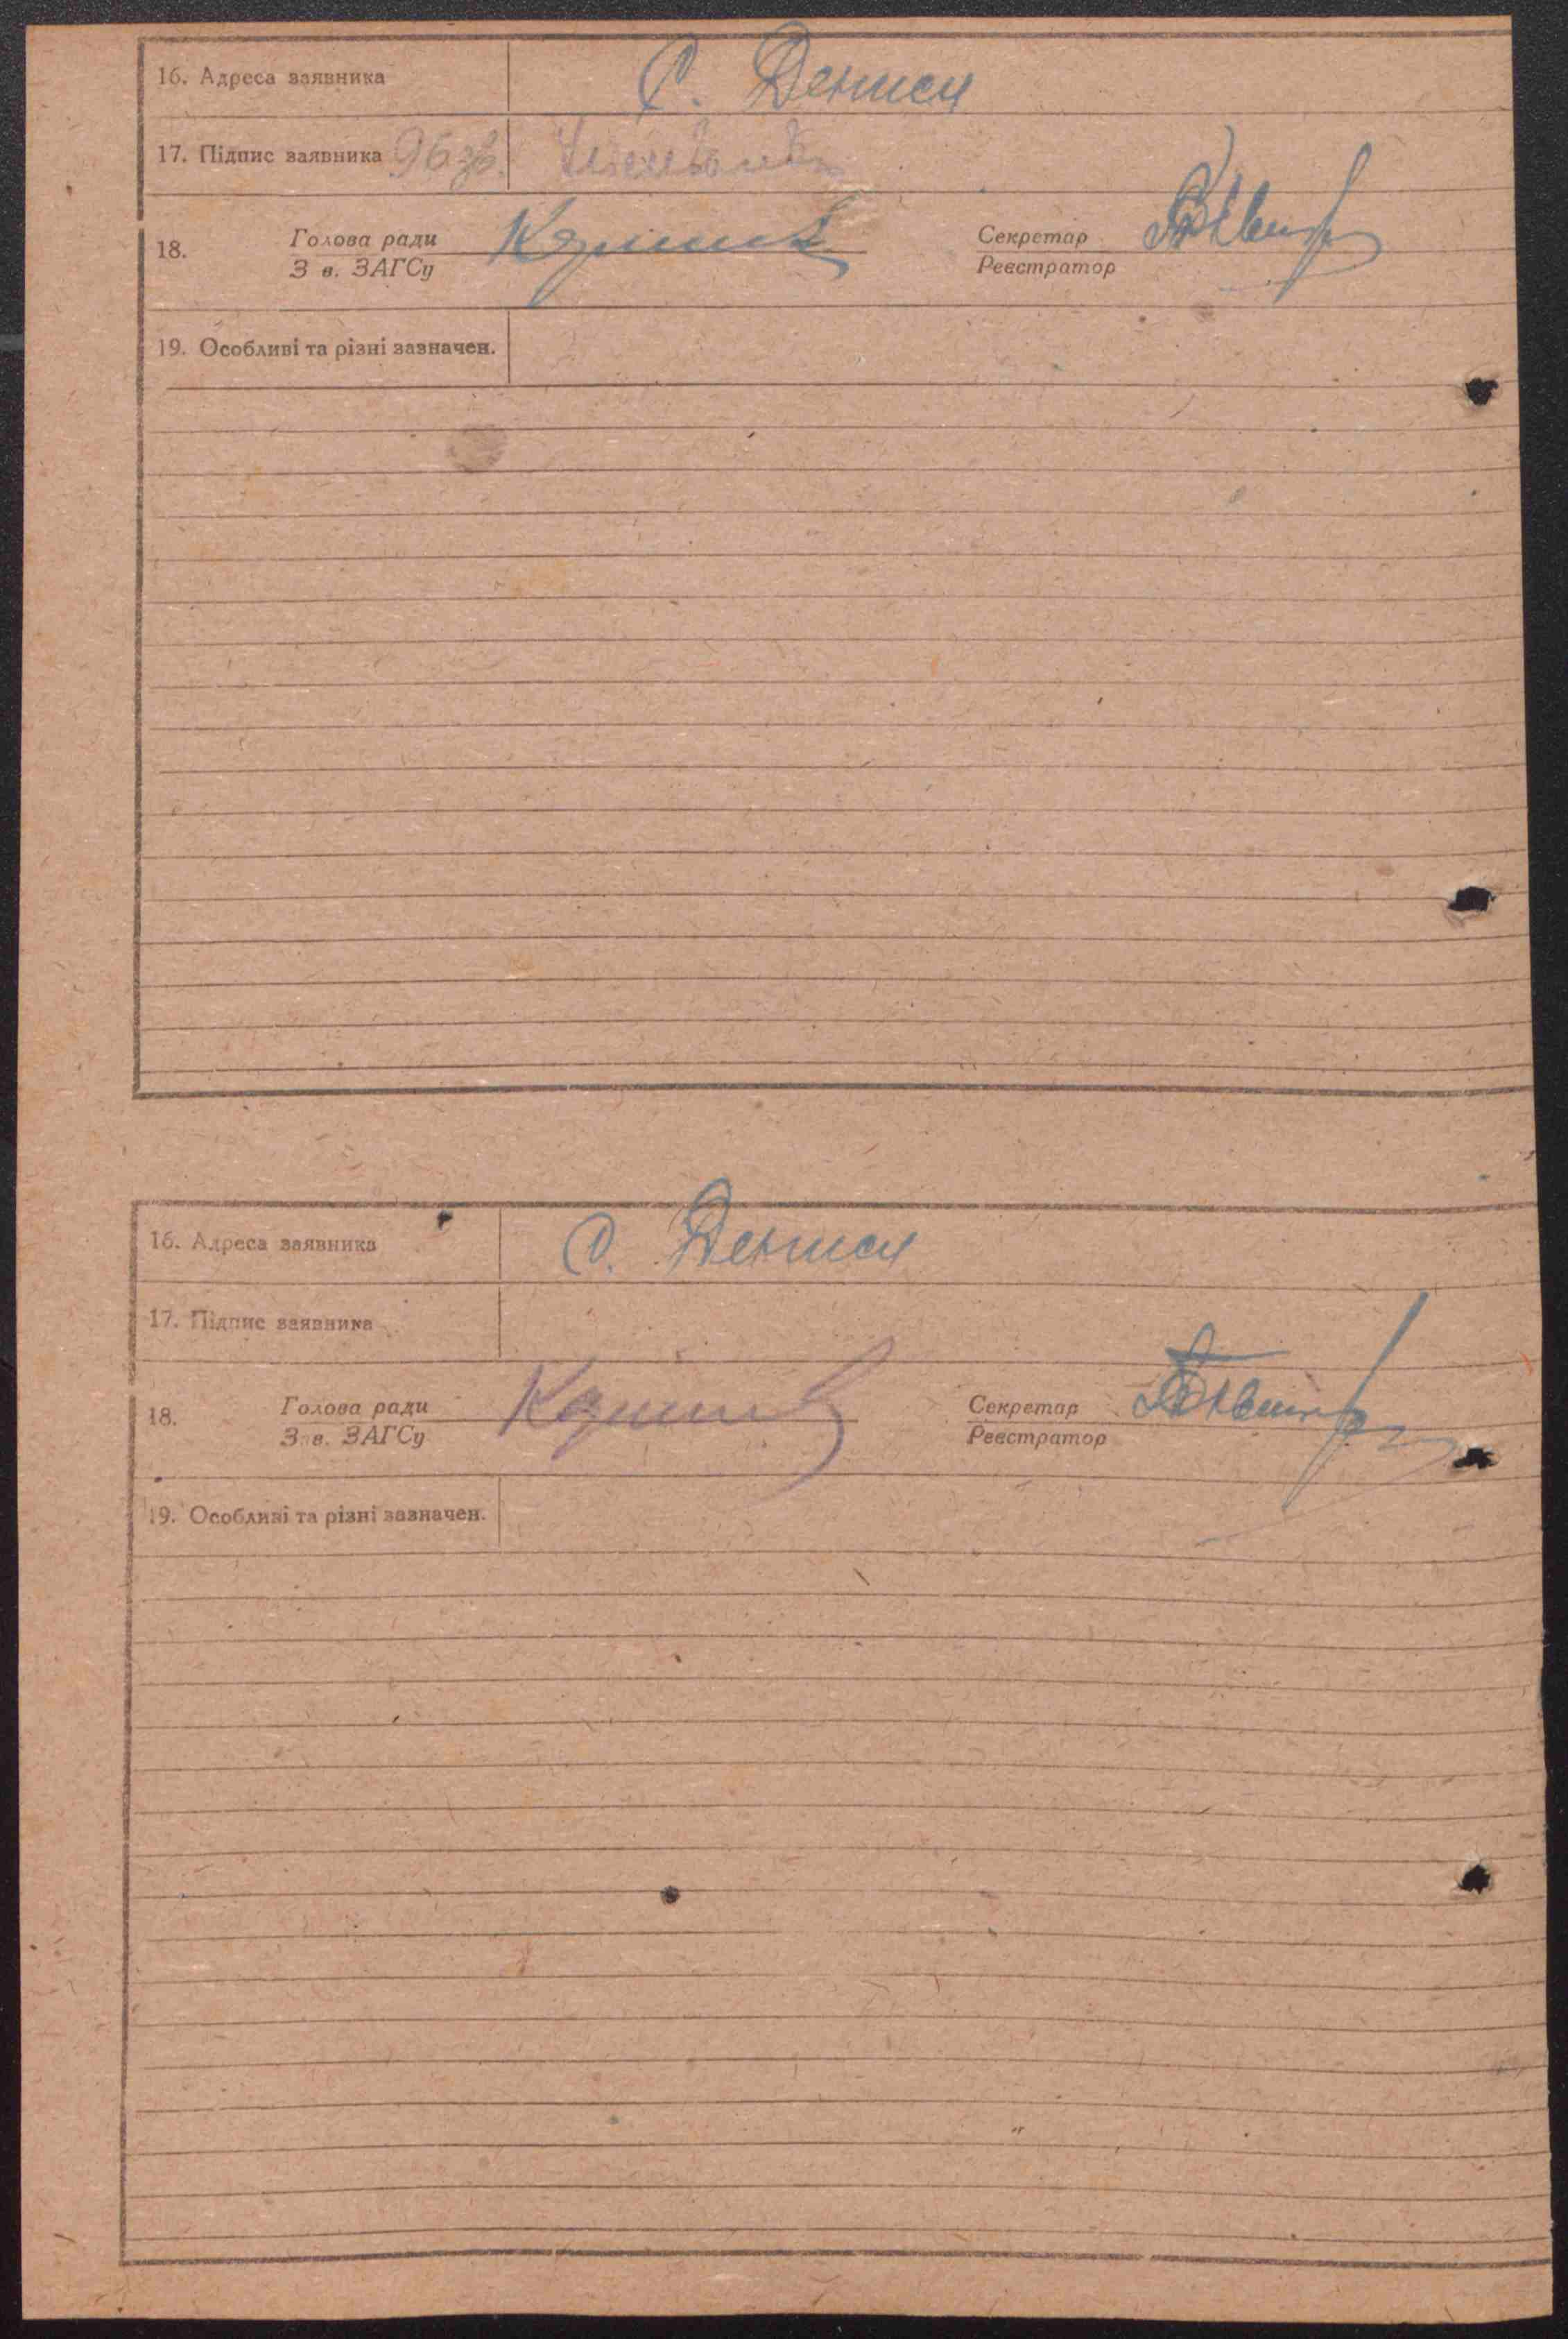 16. Адреса заявника С. Дениси
17. Підпис заявника 96 зв.
18. Голова ради Секретар
З в. ЗАГСу Реєстратор
19. Особливі та різні зазначен.
16. Адреса заявника С. Дениси
17. Підпис заявника
18. Голова ради Секретар
З в. ЗАГСу Реєстратор
19. Особливі та різні зазначен.